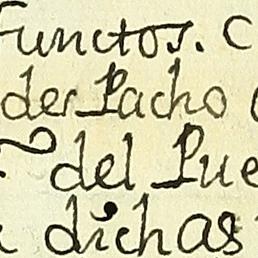 functos. C
der Pacho
del Pue
dichas